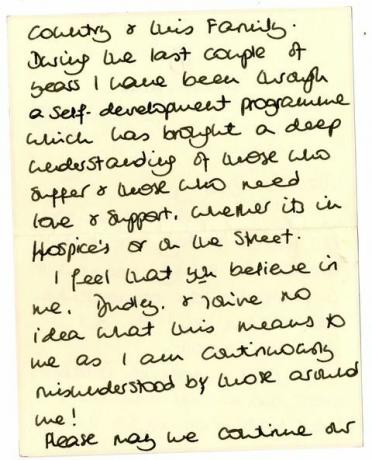 Country & this Family.
During the last couple of
years I have been through
a self-development programme
which has brought a deep
understanding of those who
suffer & those who need
love & support, whether its in
Hospice's or on the Street.
I feel that you believe in
me, Dudley, & have no
idea what this means to
me as I am continuously
misunderstood by those around
me!
Please may we continue our